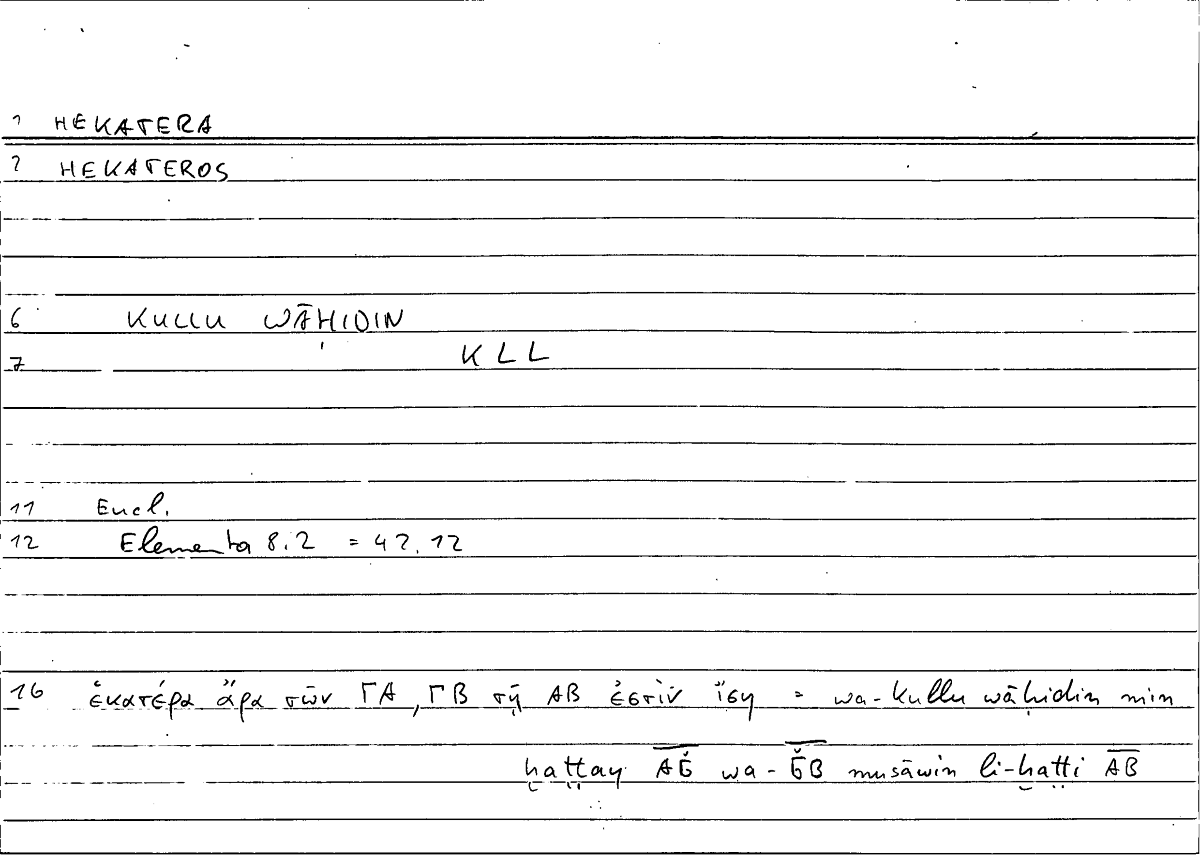 1 HEKATERA
2 HEKATEROS
6 KULLU WĀḤIDIN
7 KLL
11 Eucl.
12 Elementa 8.2 = 42.12
16 ἑκατέρα ἄρα τῶν ΓΑ, ΓΒ τῇ ΑΒ ἐστὶν ἴση = wa-kullu wāḥidin min
ḫaṭṭay A͞Ǧ wa-Ǧ͞B musāwin li-ḫaṭṭi A͞B